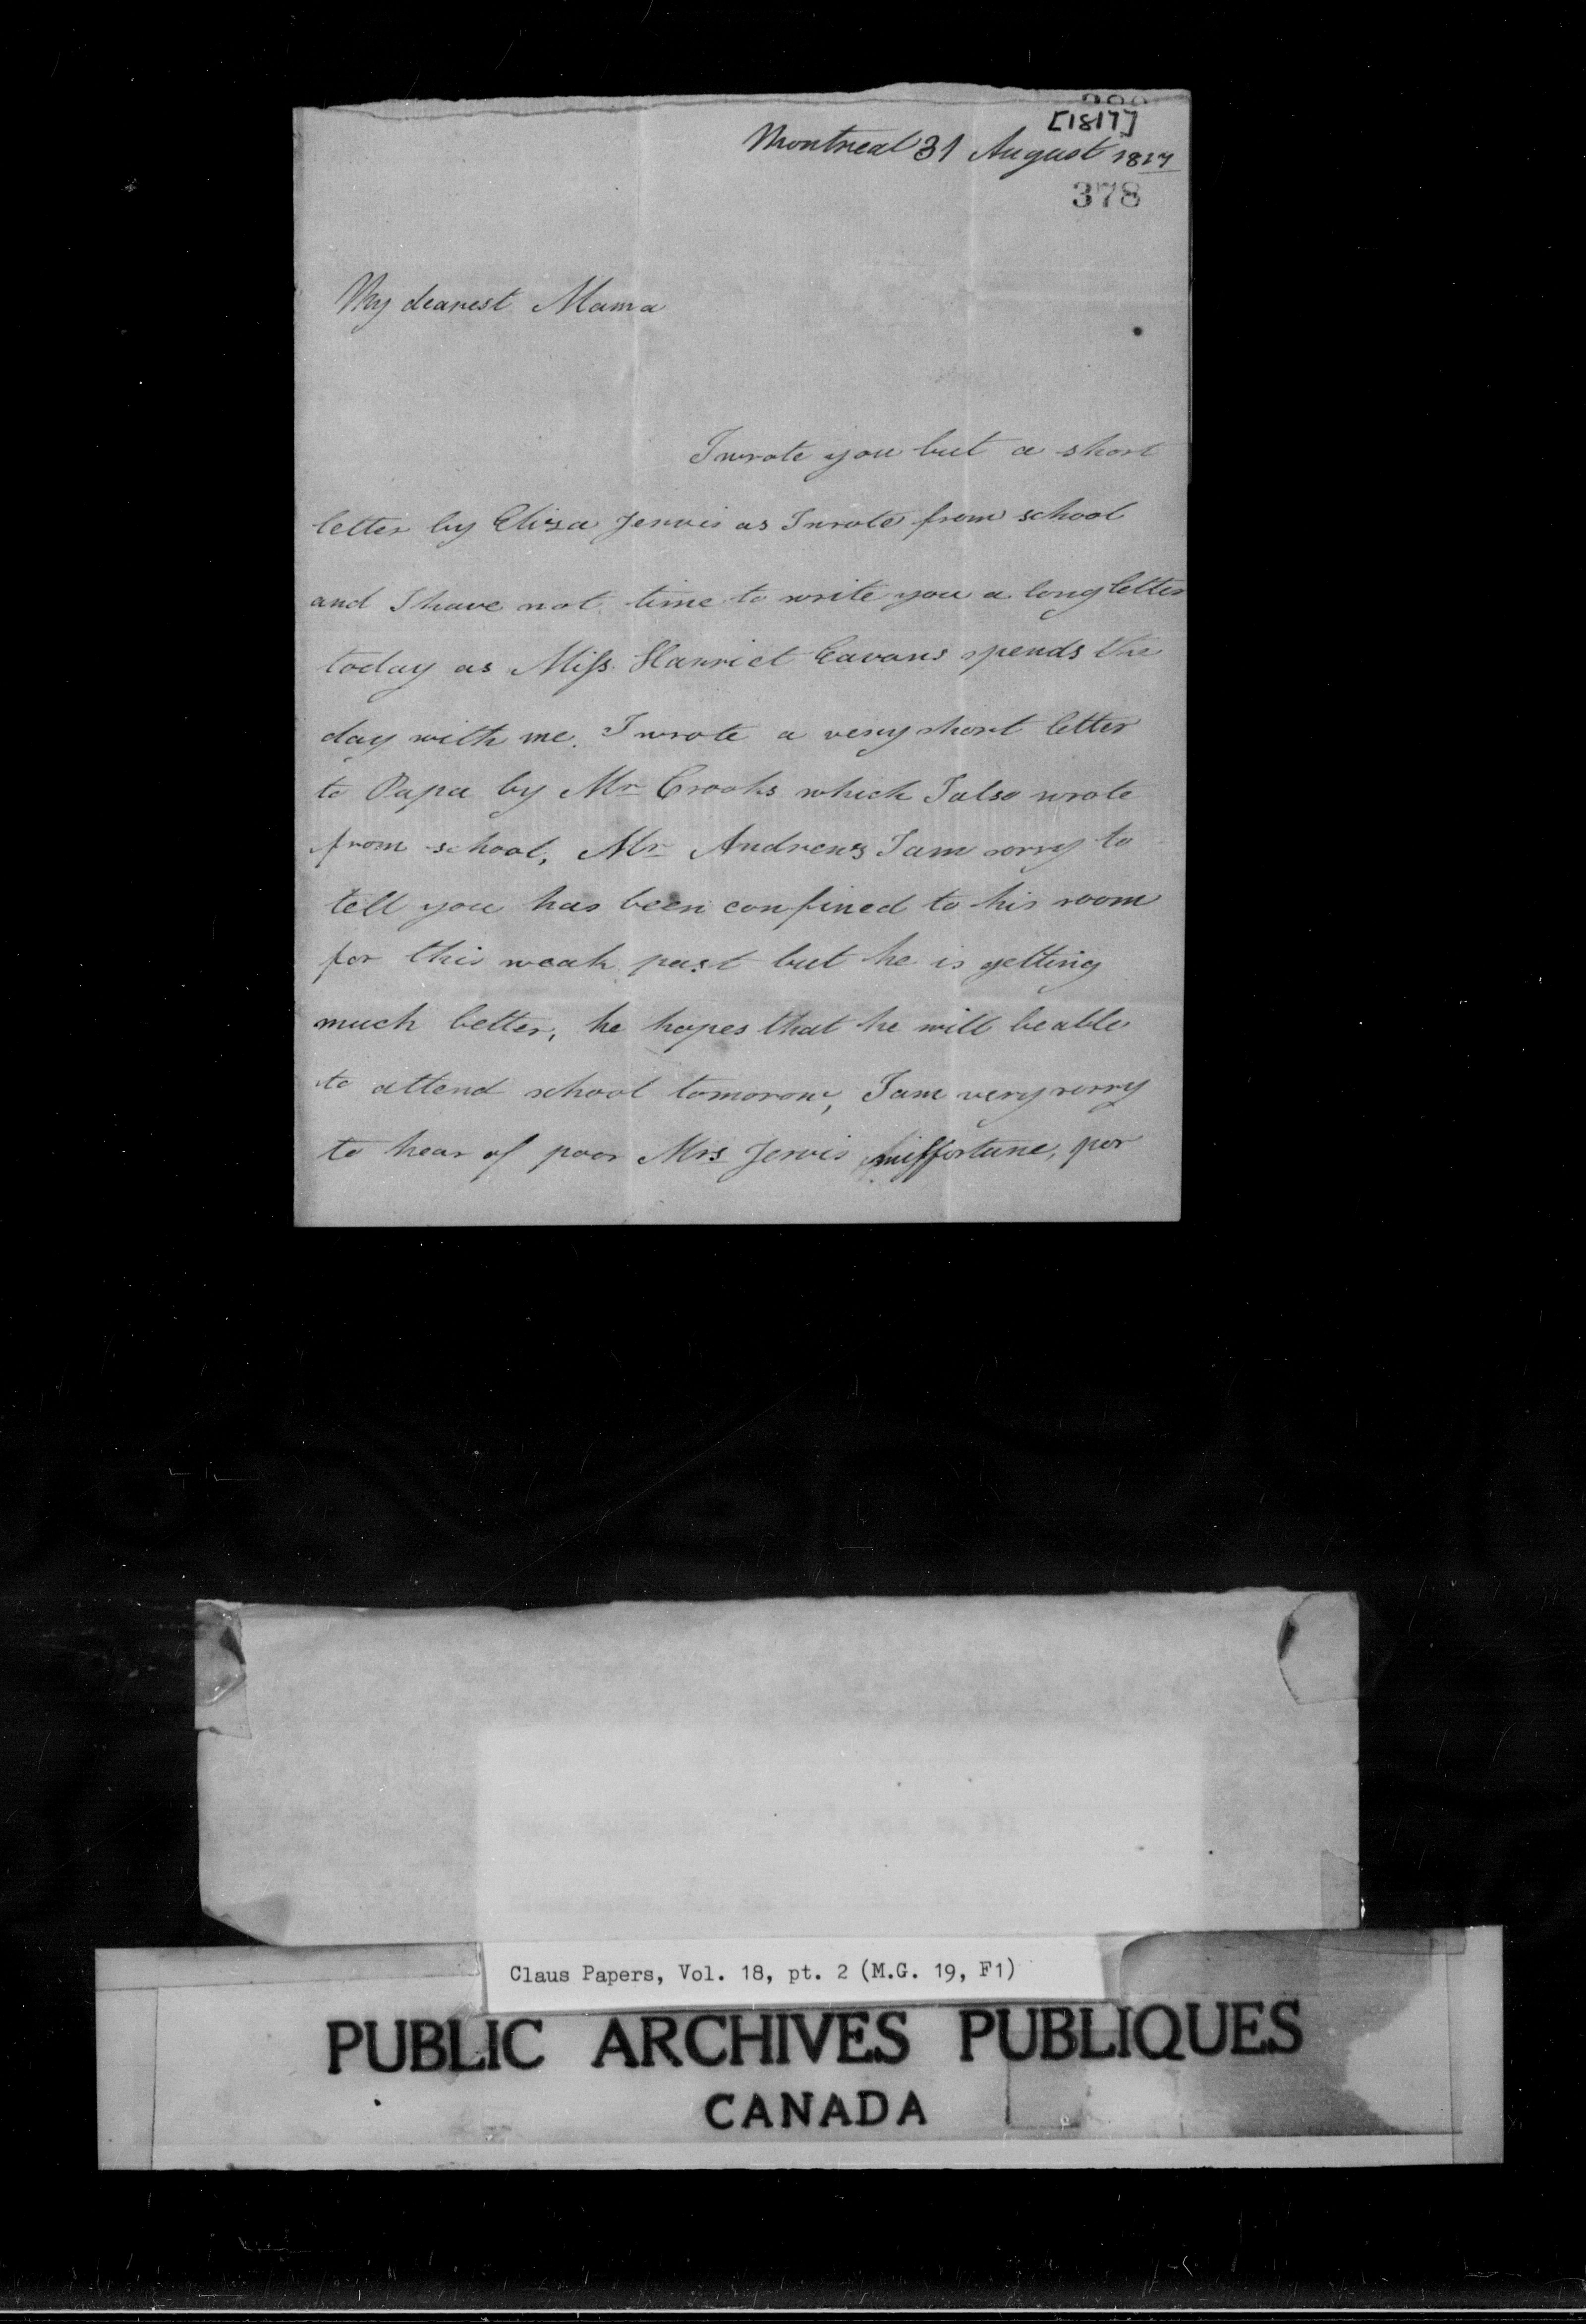 [1817]
Montreal 31 August 1817
378
My dearest Mama
I wrote you but a short
letter by Eliza Jervis as I wrote from school
and I have not time to write you a long letter
today as Miss Harriet Cavans spends the
day with me. I wrote a very short letter
to Papa by Mr Crooks which I also wrote
from school, Mr Andrews I am sorry to
tell you has been confined to his room
for this weak past but he is getting
much better, he hopes that he will be able
to attend school tomorow, I am very sorry
to hear of poor Mrs Jervis missfortune, por
Claus Papers, Vol. 18, pt. 2 (M.G. 19, F1)
PUBLIC ARCHIVES PUBLIQUES
CANADA